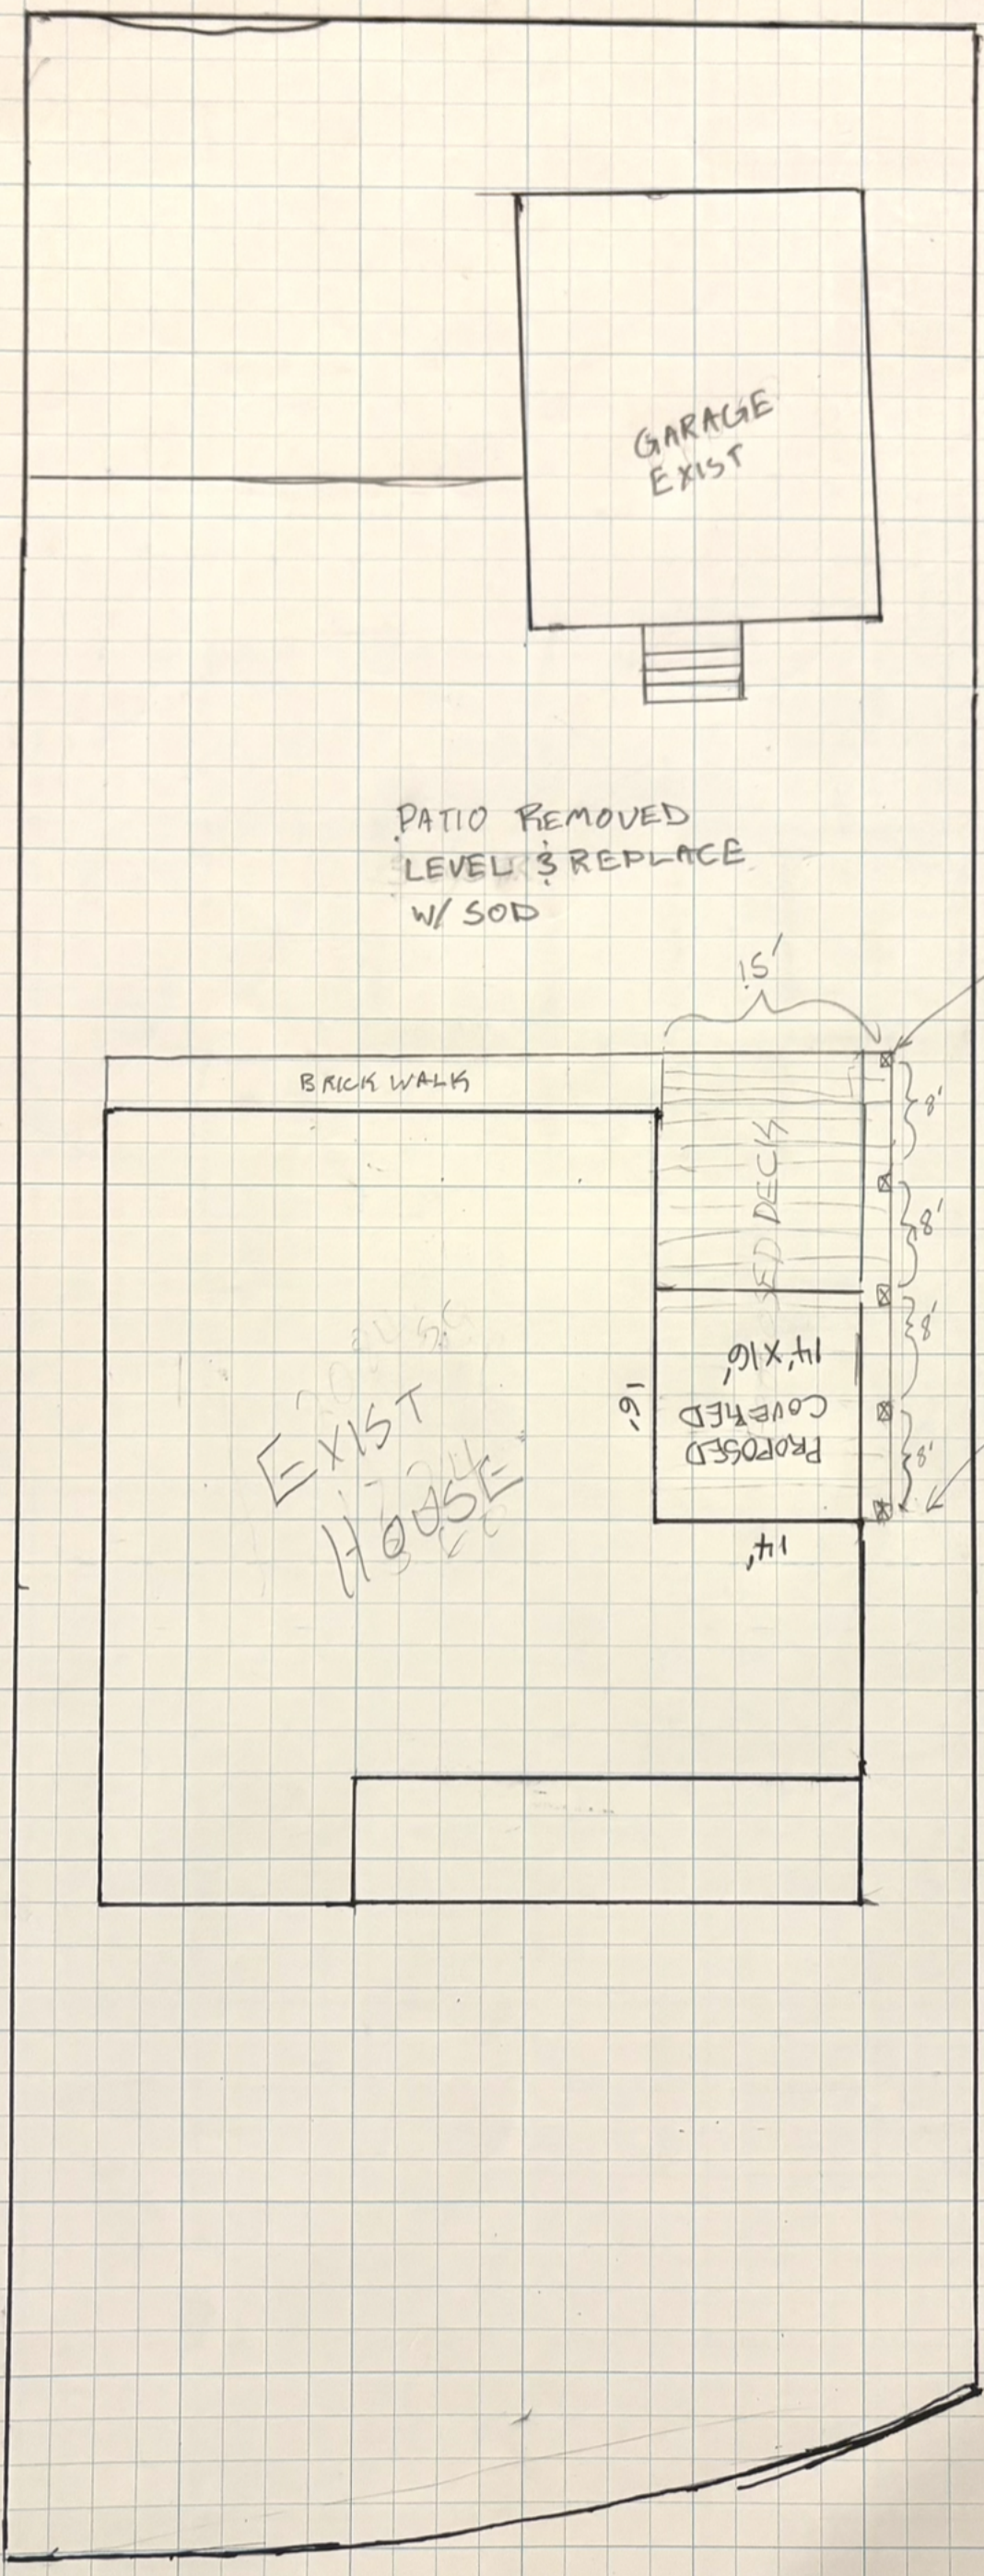 GARAGE
EXIST
PATIO REMOVED
LEVEL & REPLACE
W/ SOD
15'
BRICK WALK
8'
8'
8'
8'
DECK
14' X 16'
COVERED
PROPOSED
16'
14'
EXIST
HOUSE